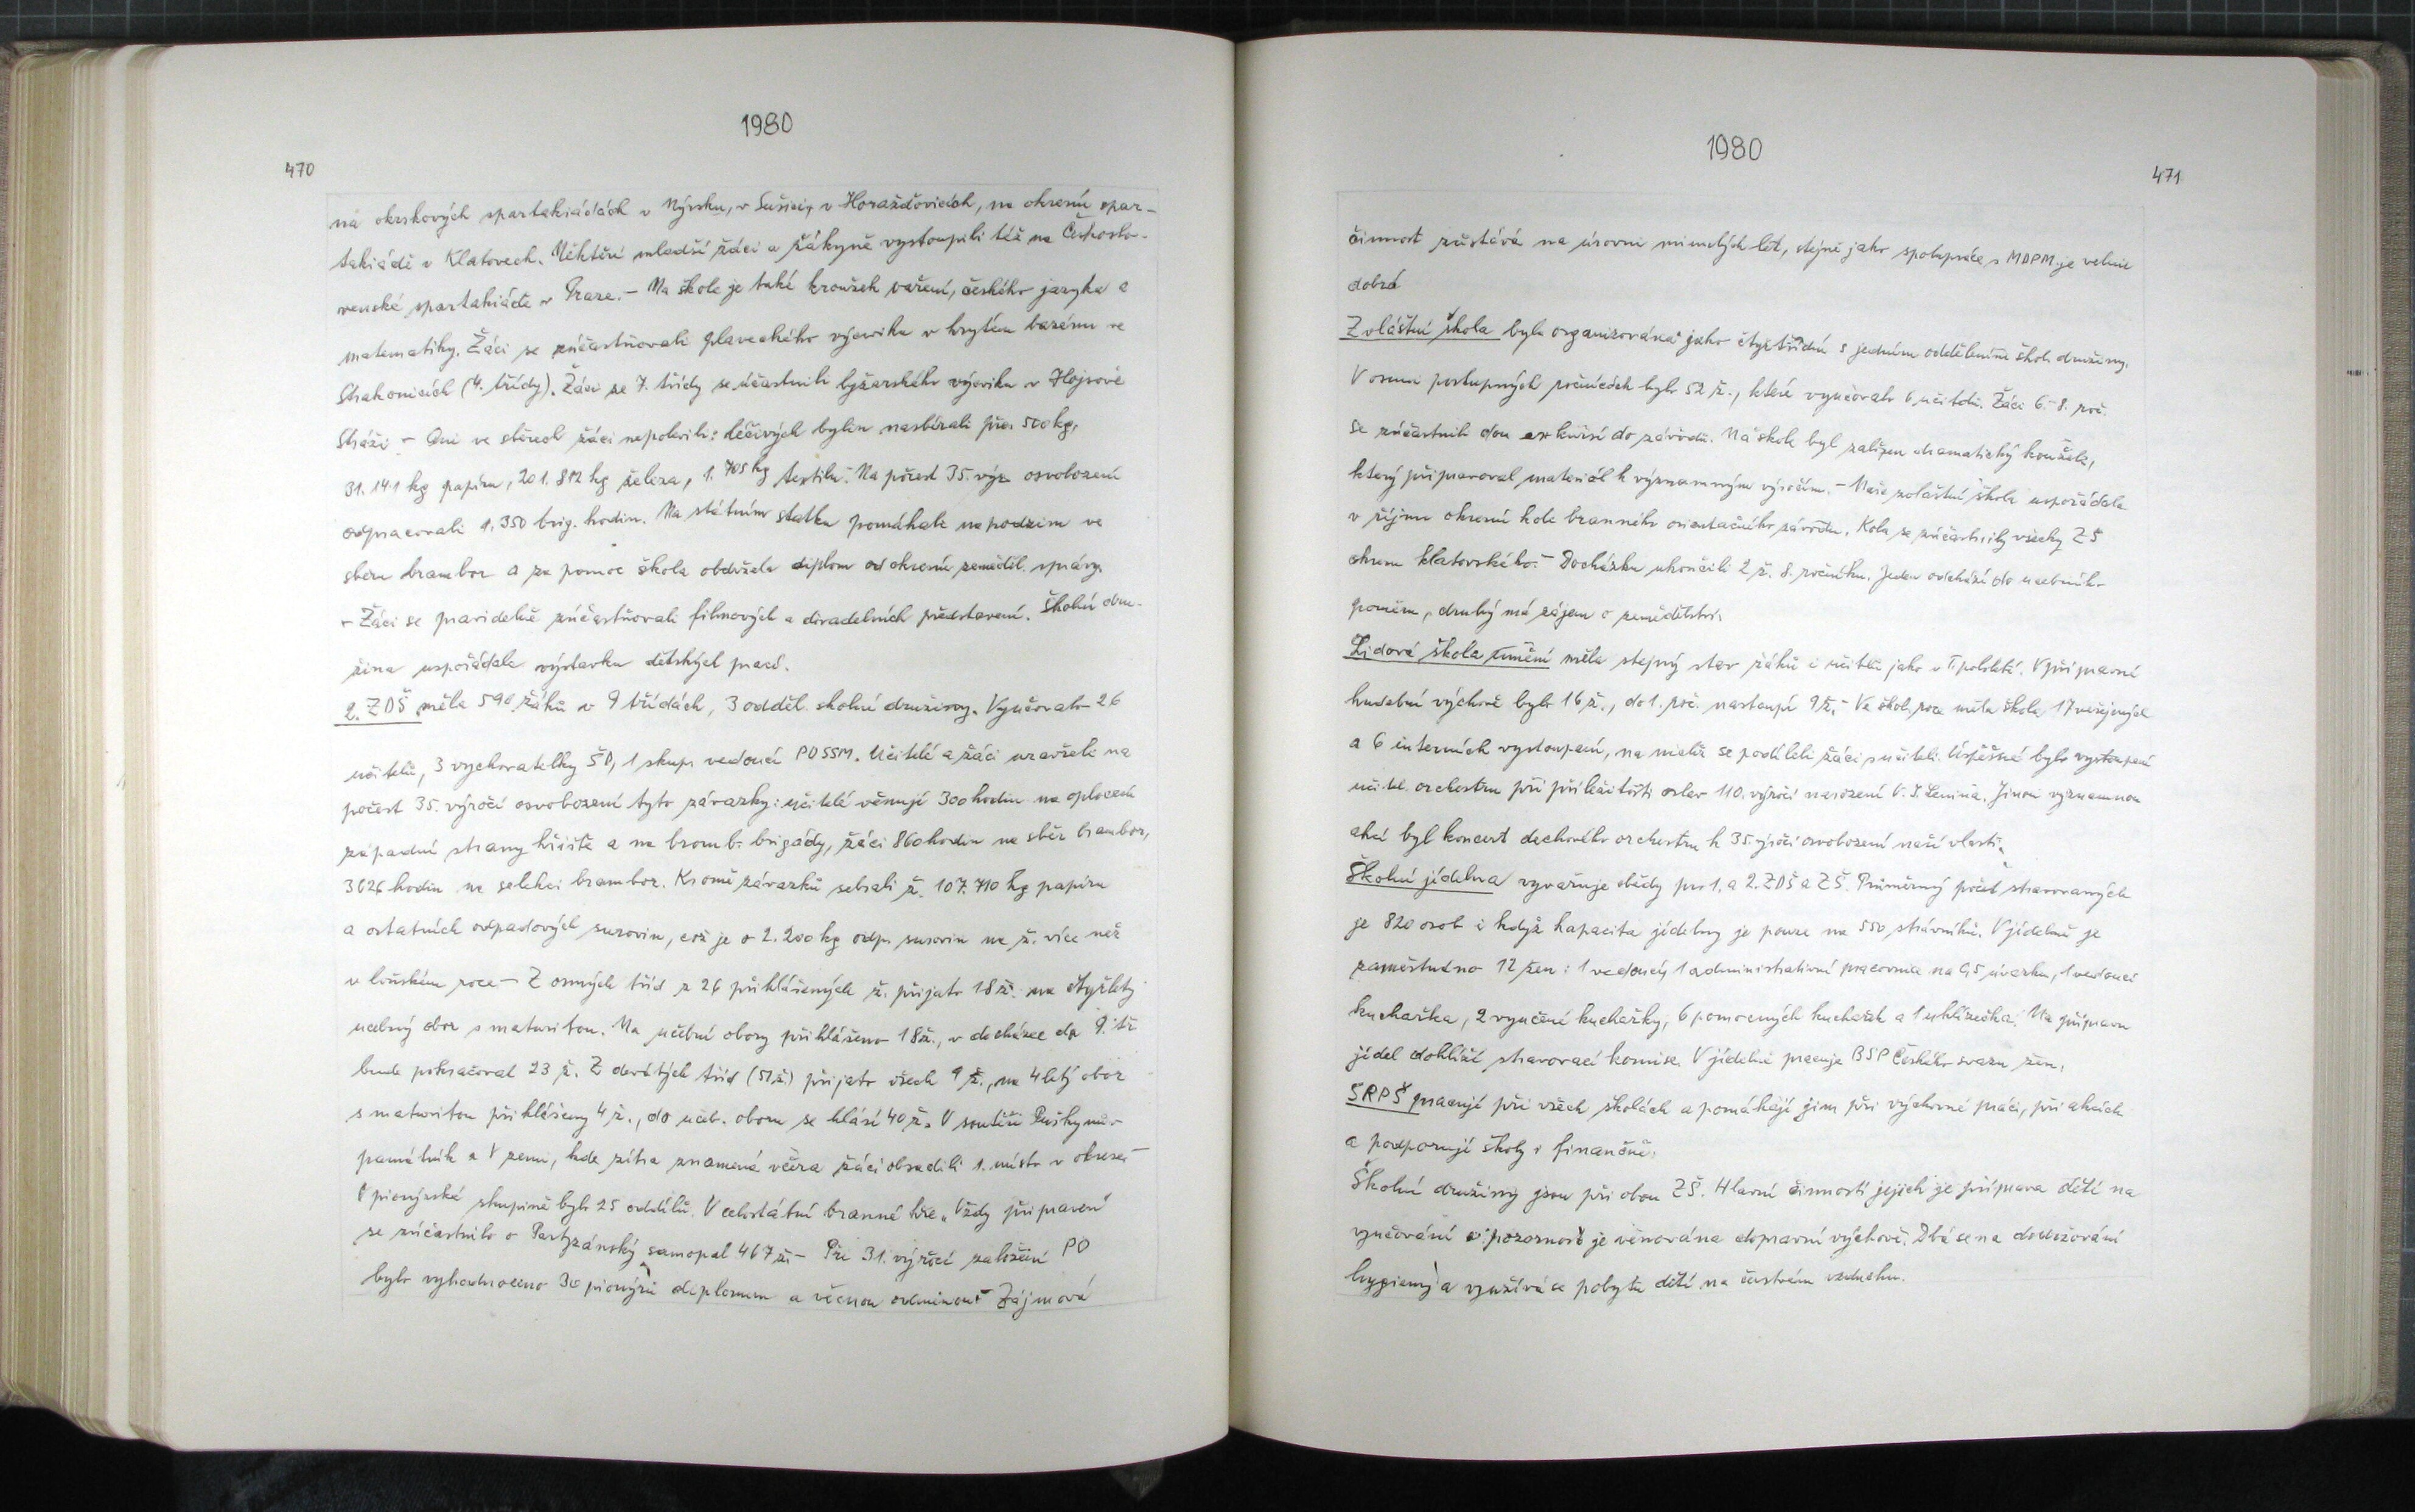 1980
470
na okrskových spartakiádách v Nýrsku, v Sušici, v Horažďovicích, na okresní spar-
takiádě v Klatovech. Někteří mladší žáci a žákyně vystoupili též na Českoslo-
venské spartakiádě v Praze. – Na škole je také kroužek vaření, českého jazyka a
matematiky. Žáci se zúčastňovali plaveckého výcviku v krytém bazénu ve
Strakonicích (4. třídy). Žáci ze 7. třídy se účastnili lyžařského výcviku v Hojsově
Stráži – Ani ve sběrech žáci nepolevili: léčivých bylin nasbírali přes 500 kg,
31.141 kg papíru, 201.812 kg železa, 1.705 kg textilu. – Na počest 35. výr. osvobození
odpracovali 1.350 brig. hodin. Na státním statku pomáhali na podzim ve
sběru brambor a za pomoc škola obdržela diplom od okresní zeměděl. správy.
– Žáci se pravidelně zúčastňovali filmových a divadelních představení. Školní dru-
žina uspořádala výstavku dětských prací.
2. ZDŠ měla 590 žáků v 9 třídách, 3 odděl. školní družiny. Vyučovalo 26
učitelů, 3 vychovatelky ŠD, 1 skup. vedoucí PO SSM. Učitelé a žáci uzavřeli na
počest 35. výročí osvobození tyto závazky: učitelé věnují 300 hodin na oplocení
západní strany hřiště a na bramb. brigády, žáci 860 hodin na sběr brambor,
3626 hodin na selekci brambor. Kromě závazků sebrali ž. 107.710 kg papíru
a ostatních odpadových surovin, což je o 2.200 kg odp. surovin na ž. více než
v loňském roce – Z osmých tříd z 26 přihlášených ž. přijato 18 ž. na čtyřletý
učebný obor s maturitou. Na učební obory přihlášeno 18 ž., v docházce do 9. tř.
bude pokračovat 23 ž. Z devátých tříd (51 ž.) přijato všech 9 ž., na 4letý obor
s maturitou přihlášeny 4 ž., do učeb. oboru se hlásí 40 ž. V soutěži Puškinův
památník a V zemi, kde zítra znamená včera žáci obsadili 1. místo v okrese –
V pionýrské skupině bylo 25 oddílů. V celostátní branné hře „Vždy připraven“
se zúčastnilo o Partyzánský samopal 467 ž. – Při 31. výročí založení PO
bylo vyhodnoceno 30 pionýrů diplomem a věcnou odměnou – Zájmová
1980
471
činnost zůstává na úrovni minulých let, stejně jako spolupráce s MDPM je velmi
dobrá
Zvláštní škola byla organizována jako čtyřtřídní s jedním oddělením škol. družiny.
V osmi postupných ročnících bylo 52 ž., které vyučovalo 6 učitelů. Žáci 6.-8. roč.
se zúčastnili dvou exkurzí do závodů. Na škole byl založen dramatický kroužek,
který připravoval materiál k významným výročím. – Naše zvláštní škola uspořádala
v říjnu okresní kolo branného orientačního závodu. Kola se zúčastnily všechny ZŠ
okresu klatovského. – Docházku ukončili 2 ž. 8. ročníku. Jeden odchází do učebního
poměru, druhý má zájem o zemědělství.
Lidová škola umění měla stejný stav žáků i učitelů jako v I. pololetí. V přípravné
hudební výchově bylo 16 ž., do 1. roč. nastoupí 9 ž. – Ve škol. roce měla škola 17 veřejných
a 6 interních vystoupení, na nichž se podíleli žáci s učiteli. Úspěšné bylo vystoupení
učitel. orchestru při příležitosti oslav 110. výročí narození V. I. Lenina. Jinou významnou
akcí byl koncert dechového orchestru k 35. výročí osvobození naší vlasti.
Školní jídelna vyvařuje obědy pro 1. a 2. ZDŠ a ZŠ. Průměrný počet stravovaných
je 820 osob i když kapacita jídelny je pouze na 550 strávníků. V jídelně je
zaměstnáno 12 žen: 1 vedoucí, 1 administrativní pracovnice na 0,5 úvazku, 1 vedoucí
kuchařka, 2 vyučené kuchařky, 6 pomocných kuchařek a 1 uklízečka. Na přípravu
jídel dohlíží stravovací komise. V jídelně pracuje BSP Českého svazu žen.
SRPŠ pracují při všech školách a pomáhají jim při výchovné práci, při akcích
a podporují školy i finančně.
Školní družiny jsou při obou ZŠ. Hlavní činností jejich je příprava dětí na
vyučování pozornost je věnována dopravní výchově. Dbá se na dodržování
hygieny a využívá se pobytu dětí na čerstvém vzduchu.